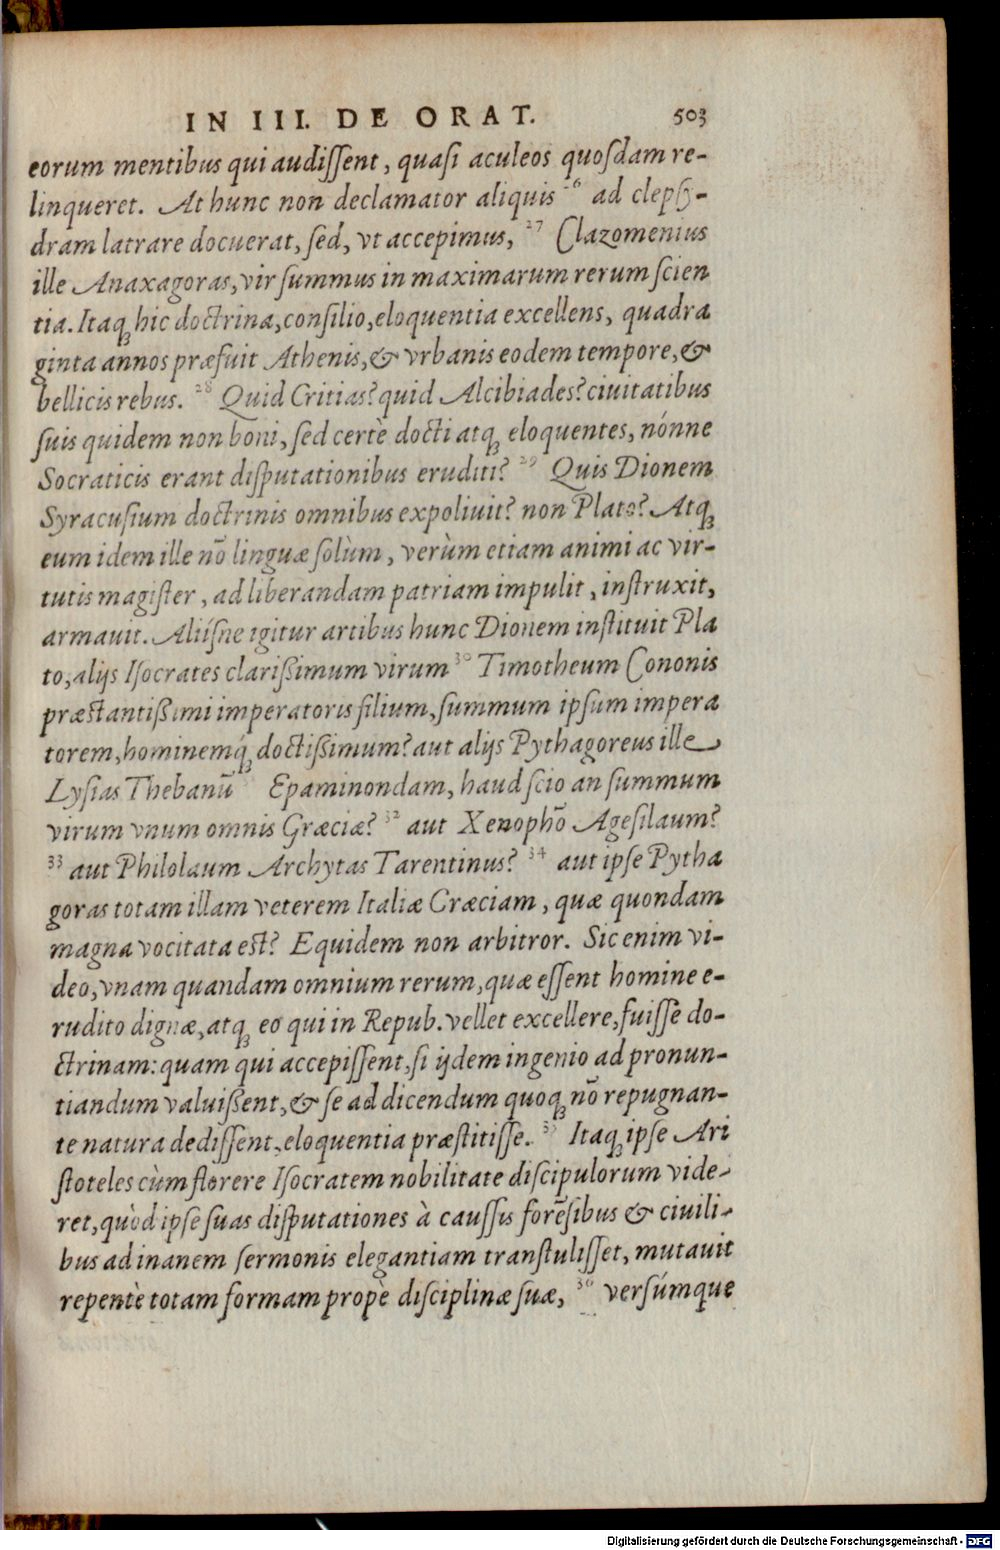 IN III. DE ORAT. 503
eorum mentibus qui audiſſent, quaſi aculeos quoſdam re-
linqueret. At hunc non declamator aliquis 26 ad clepſy-
dram latrare docuerat, ſed, vt accepimus, 27 Clazomenius
ille Anaxagoras, vir ſummus in maximarum rerum ſcien
tia. Itaq; hic doctrina, conſilio, eloquentia excellens, quadra
ginta annos præfuit Athenis, & vrbanis eodem tempore, &
bellicis rebus. 28 Quid Critias? quid Alcibiades? ciuitatibus
ſuis quidem non boni, ſed certè docti atq; eloquentes, nónne
Socraticis erant diſputationibus eruditi? 29 Quis Dionem
Syracuſium doctrinis omnibus expoliuit? non Plato? Atq;
eum idem ille nō linguæ ſolùm, verùm etiam animi ac vir-
tutis magiſter, ad liberandam patriam impulit, inſtruxit,
armauit. Aliiſne igitur artibus hunc Dionem inſtituit Pla
to, alijs Iſocrates clariſſimum virum 30 Timotheum Cononis
præſtantiſſimi imperatoris filium, ſummum ipſum impera
torem, hominemq́; doctiſſimum? aut alijs Pythagoreus ille
Lyſias Thebanū Epaminondam, haud ſcio an ſummum
virum vnum omnis Græciæ? 32 aut Xenophō Ageſilaum?
33 aut Philolaum Archytas Tarentinus? 34 aut ipſe Pytha
goras totam illam veterem Italiæ Græciam, quæ quondam
magna vocitata eſt? Equidem non arbitror. Sic enim vi-
deo, vnam quandam omnium rerum, quæ eſſent homine e-
rudito dignæ, atq; eo qui in Repub. vellet excellere, fuiſſe do-
ctrinam: quam qui accepiſſent, ſi ijdem ingenio ad pronun-
tiandum valuiſſent, & ſe ad dicendum quoq; nō repugnan-
te natura dediſſent, eloquentia præſtitiſſe. 35 Itaq; ipſe Ari
ſtoteles cùm florere Iſocratem nobilitate diſcipulorum vide-
ret, quòd ipſe ſuas diſputationes à cauſſis forēſibus & ciuili-
bus ad inanem ſermonis elegantiam tranſtuliſſet, mutauit
repentè totam formam propè diſciplinæ ſuæ, 36 verſúmque
Digitalisierung gefördert durch die Deutsche Forschungsgemeinschaft - DFG